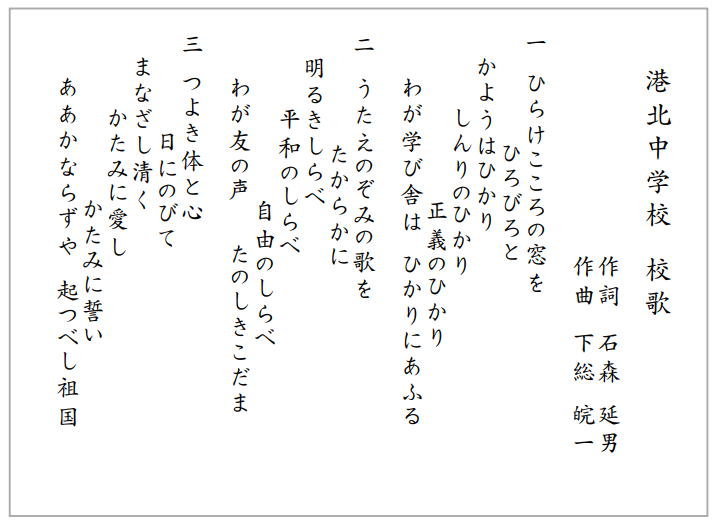 港北中学校　校歌
作詞　石森　延男
作曲　下総　皖一
一　ひらけこころの窓を
ひろびろと
かようはひかり
しんりのひかり
正義のひかり
わが学び舎は　ひかりにあふる
二　うたえのぞみの歌を
たからかに
明るきしらべ
平和のしらべ
自由のしらべ
わが友の声　たのしきこだま
三　つよき体と心
日にのびて
まなざし清く
かたみに愛し
かたみに誓い
ああかならずや　起つべし祖国